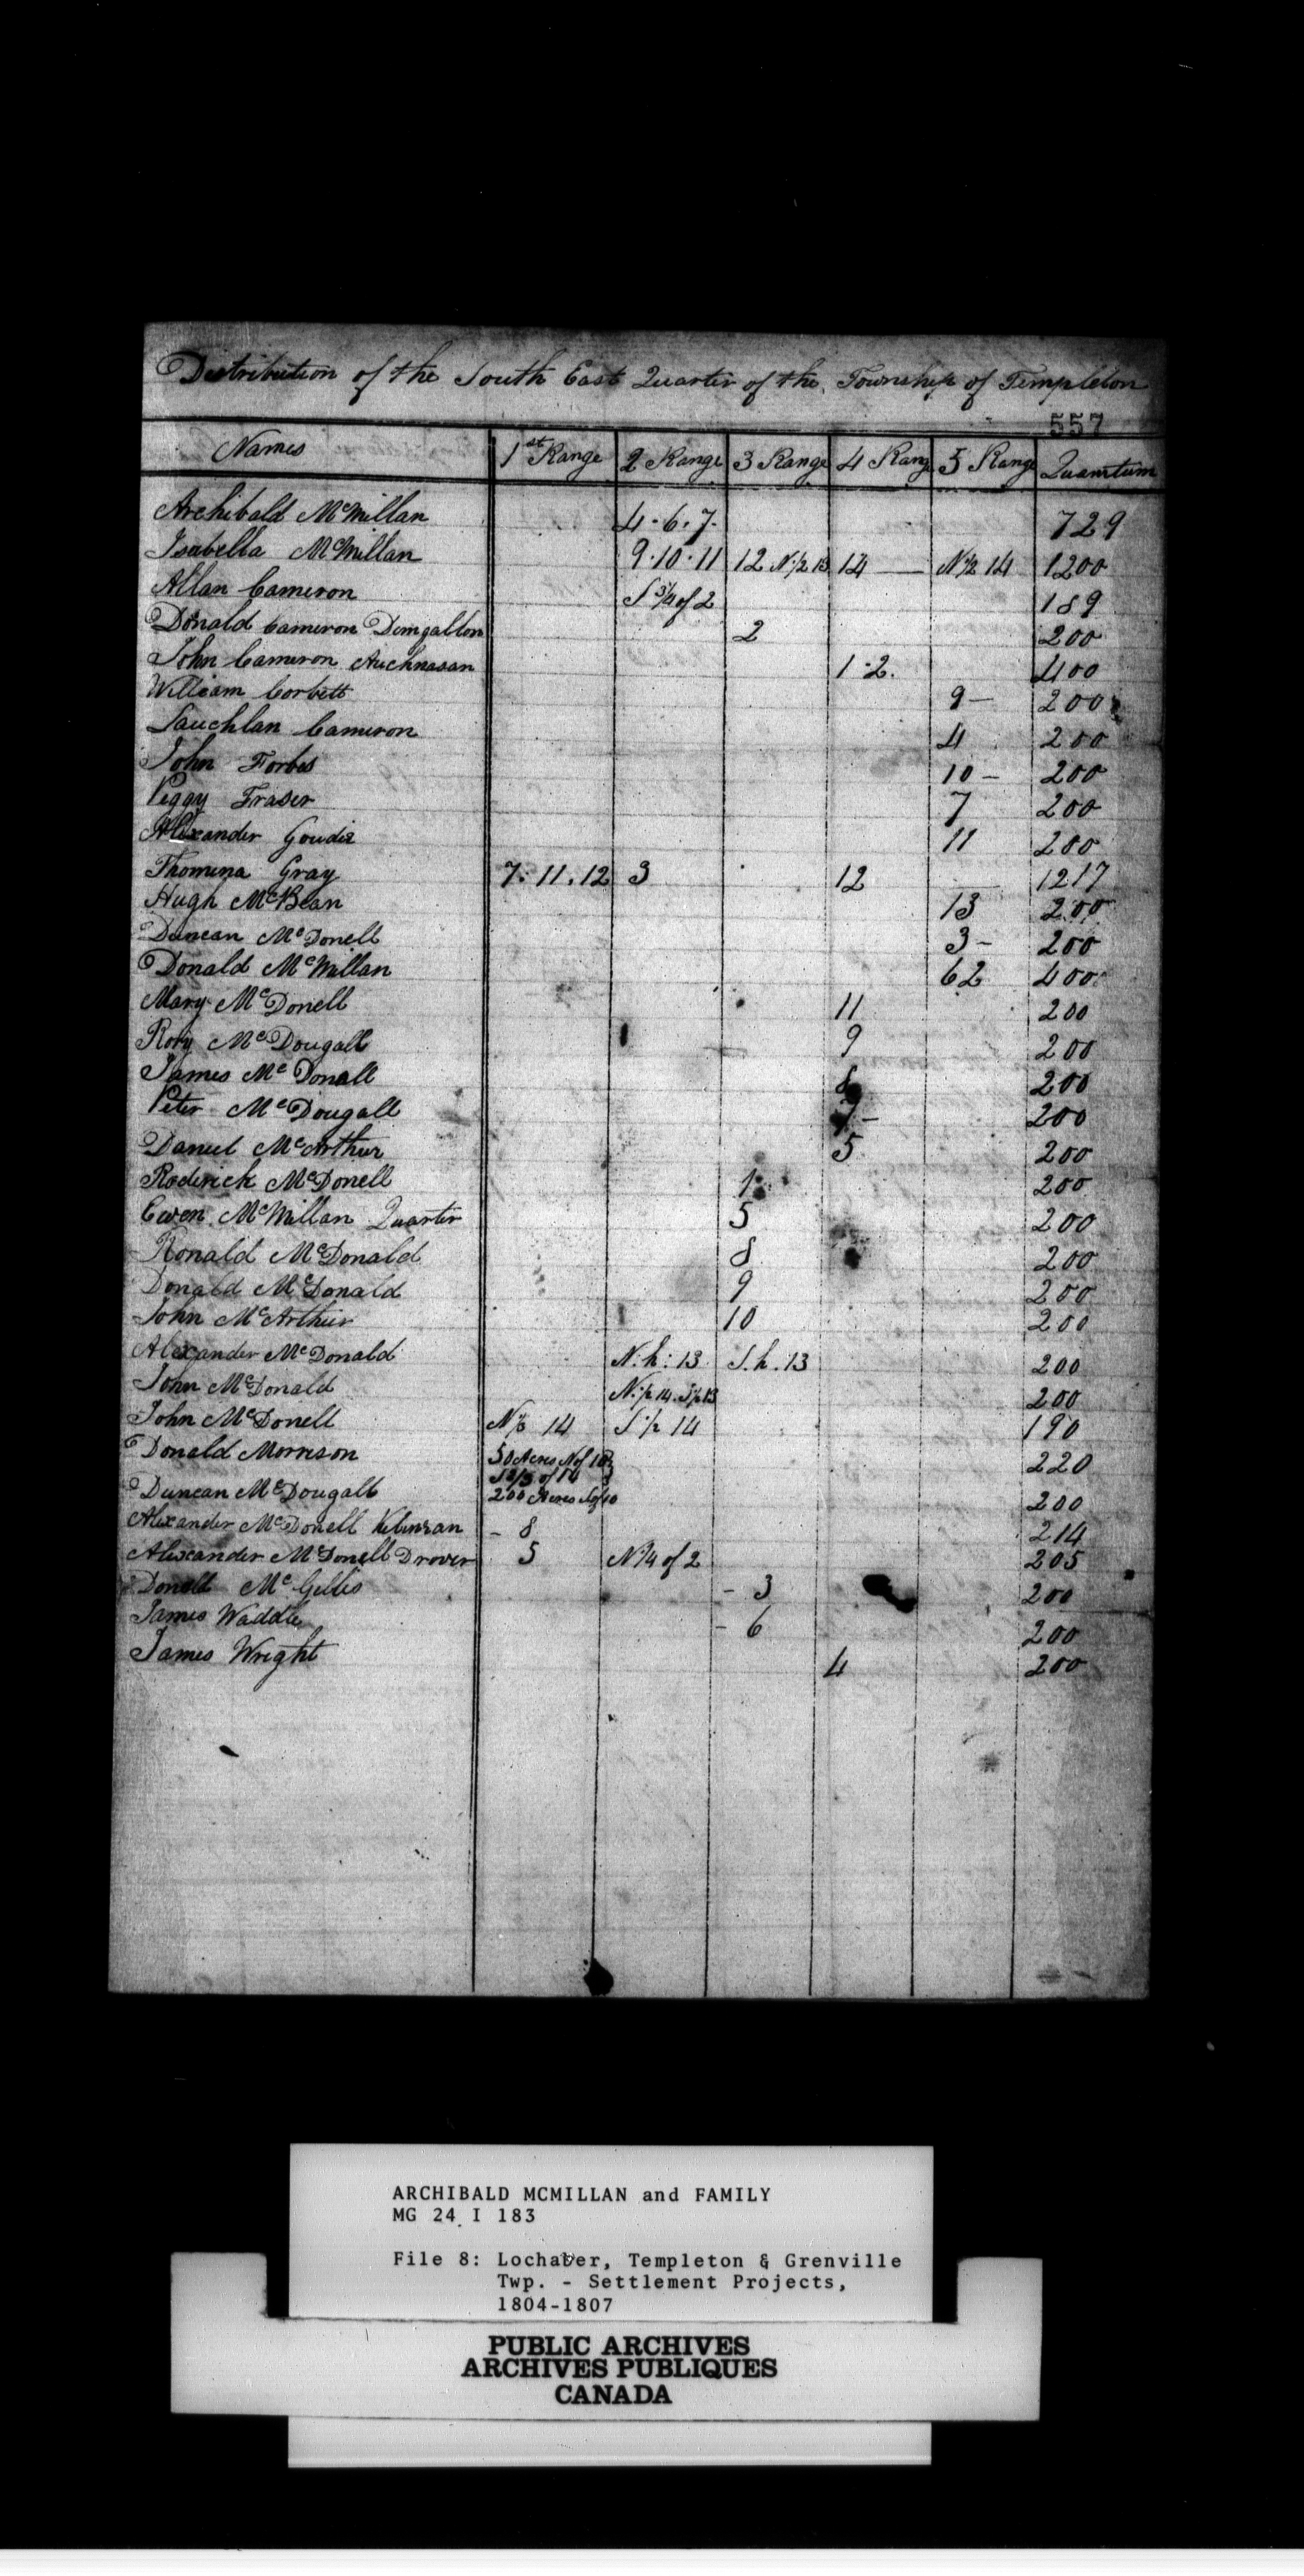 Distribution of the South East Quarter of the Township of Templeton
557
Names 1st Range 2 Range 3 Range 4 Rang 5 Range Quantum
Archibald McMillan 4. 6. 7. 729
Isabella McMillan 9. 10. 11 12 N. 1/2 13 14 N 1/2 14 1200
Allan Cameron S 3/4 of 2 189
Donald Cameron Dungallon 2 200
John Cameron Auchnasan 1. 2. 400
William Corbett 9 - 200
Lauchlan Cameron 4 200
John Forbes 10 - 200
Peggy Fraser 7 200
Alexander Goudie 11 200
Thomina Gray 7. 11. 12 3 12 1217
Hugh McBean 13 200
Duncan McDonell 3 - 200
Donald McMillan 6 2 400
Mary McDonell 11 200
Rory McDougall 9 200
James McDonell 8 200
Peter McDougall 7 - 200
Daniel McArthur 5 200
Roderick McDonell 1 200
Ewen McMillan Quarter 5 200
Ronald McDonald 8 200
Donald McDonald 9 200
John McArthur 10 200
Alexander McDonald N. h : 13 S. h. 13 200
John McDonald N. 1/2 14. S 1/2 13 200
John McDonell N 1/3 14 S 1/2 14 190
Donald Morrison 50 Acres N of 10 220
S 2/3 of 14
Duncan McDougall 200 Acres S of 10 200
Alexander McDonell - 8 214
Alexander McDonell Drover 5 N 1/4 of 2 205
Donell McGillis - 3 200
James Waddie - 6 200
James Wright 4 200
ARCHIBALD MCMILLAN and FAMILY
MG 24 I 183
File 8: Lochaber, Templeton & Grenville
Twp. - Settlement Projects,
1804-1807
PUBLIC ARCHIVES
ARCHIVES PUBLIQUES
CANADA